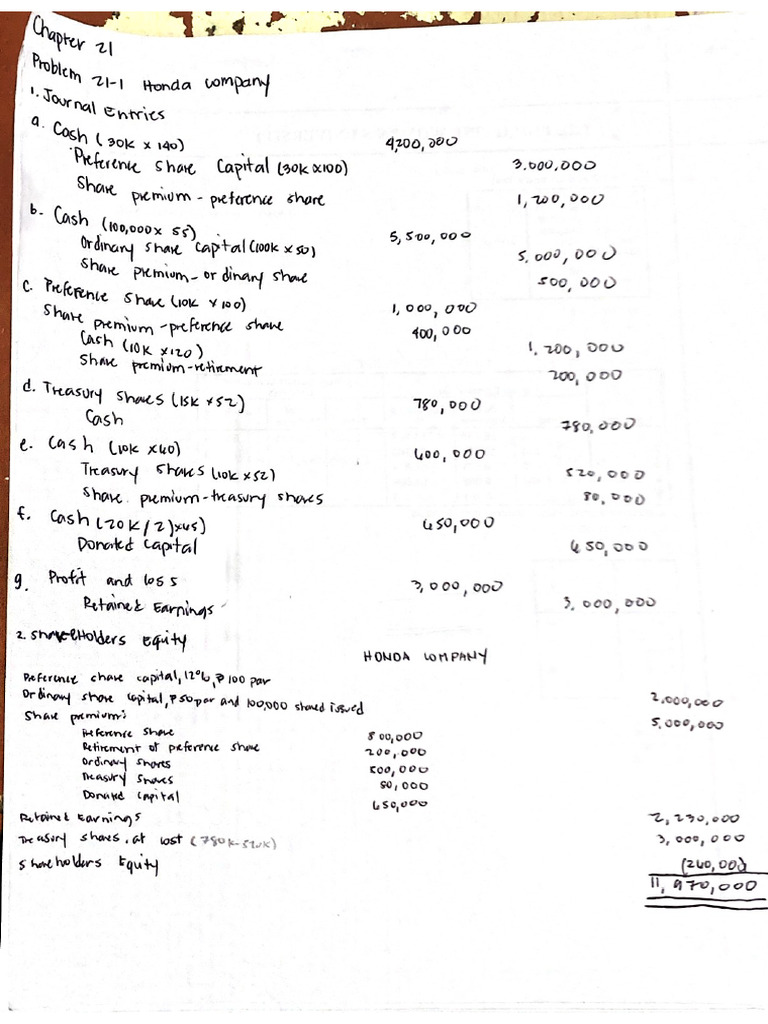 Chapter 21
Problem 21-1 Honda Company
1. Journal Entries
a. Cash (30K x 140) 4,200,000
Preference Share Capital (30K x100) 3,000,000
Share premium - preference share 1,200,000
b. Cash (100,000 x 55) 5,500,000
Ordinary share capital (100K x 50) 5,000,000
Share premium - ordinary share 500,000
c. Preference Share (10K x 100) 1,000,000
Share premium - preference share 400,000
Cash (10K x120) 1,200,000
Share premium - retirement 200,000
d. Treasury Shares (15K x 52) 780,000
Cash 780,000
e. Cash (10K x60) 600,000
Treasury Shares (10K x 52) 520,000
Share premium - treasury shares 80,000
f. Cash (20K/2) x 65) 650,000
Donated Capital 650,000
g. Profit and loss 3,000,000
Retained Earnings 3,000,000
2. Shareholders Equity
HONDA COMPANY
Preference share capital, 12%, ₱100 par 2,000,000
Ordinary share capital, ₱50 par and 100,000 shared issued 5,000,000
Share premium:
Preference Share 800,000
Retirement of preference share 200,000
Ordinary Shares 500,000
Treasury Shares 80,000
Donated Capital 650,000
2,230,000
Retained Earnings 3,000,000
Treasury shares, at cost (780K-520K) (260,000)
Shareholders Equity 11,970,000